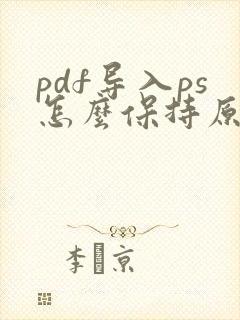 pdf导入ps
怎麼保持原
李 京